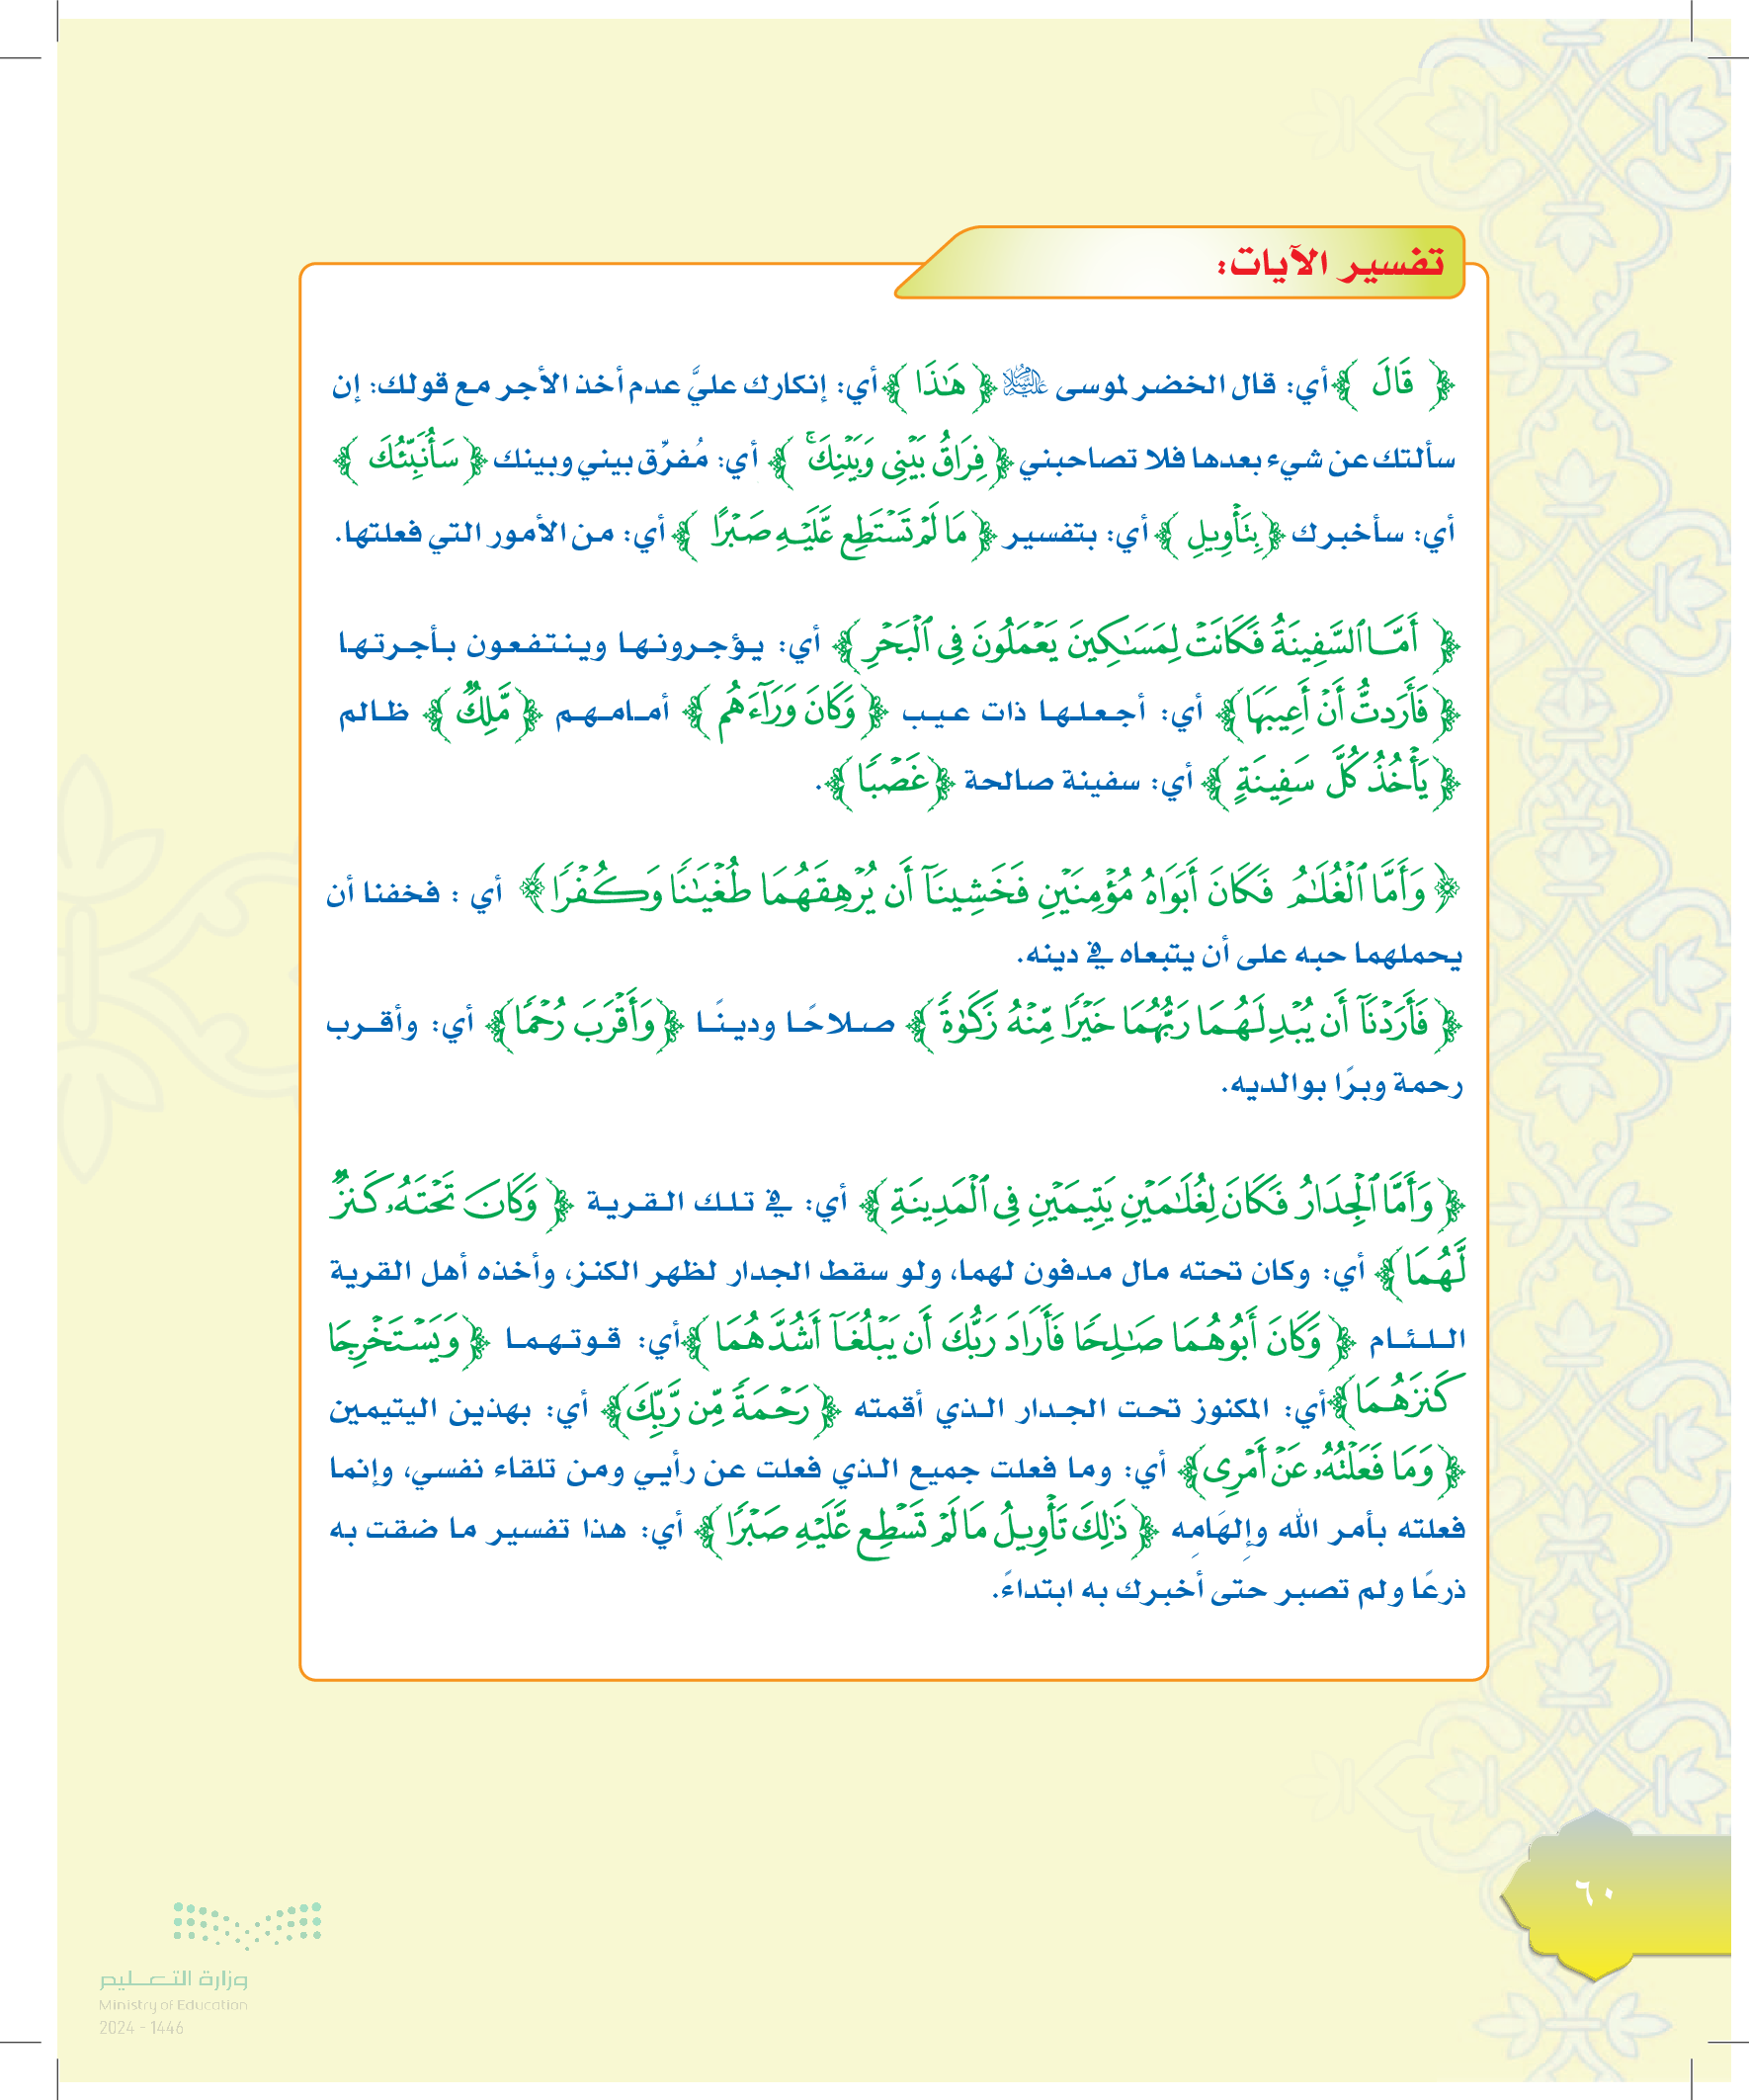 تفسير الآيات:
﴿ قَالَ ﴾ أي: قال الخضر لموسى عليه السلام ﴿ هَٰذَا ﴾ أي: إنكارك عليَّ عدم أخذ الأجر مع قولك: إن
سألتك عن شيء بعدها فلا تصاحبني ﴿ فِرَاقُ بَيْنِي وَبَيْنِكَ ۚ ﴾ أي: مُفرِّق بيني وبينك ﴿ سَأُنَبِّئُكَ ﴾
أي: سأخبرك ﴿ بِتَأْوِيلِ ﴾ أي: بتفسير ﴿ مَا لَمْ تَسْتَطِع عَّلَيْهِ صَبْرًا ﴾ أي: من الأمور التي فعلتها.
﴿ أَمَّا ٱلسَّفِينَةُ فَكَانَتْ لِمَسَٰكِينَ يَعْمَلُونَ فِى ٱلْبَحْرِ ﴾ أي: يؤجرونها وينتفعون بأجرتها
﴿ فَأَرَدتُّ أَنْ أَعِيبَهَا ﴾ أي: أجعلها ذات عيب ﴿ وَكَانَ وَرَآءَهُم ﴾ أمامهم ﴿ مَّلِكٌ ﴾ ظالم
﴿ يَأْخُذُ كُلَّ سَفِينَةٍ ﴾ أي: سفينة صالحة ﴿ غَصْبًا ﴾.
﴿ وَأَمَّا ٱلْغُلَٰمُ فَكَانَ أَبَوَاهُ مُؤْمِنَيْنِ فَخَشِينَآ أَن يُرْهِقَهُمَا طُغْيَٰنًا وَكُفْرًا ﴾ أي : فخفنا أن
يحملهما حبه على أن يتبعاه في دينه.
﴿ فَأَرَدْنَآ أَن يُبْدِلَهُمَا رَبُّهُمَا خَيْرًا مِّنْهُ زَكَوٰةً ﴾ صلاحًا ودينًا ﴿ وَأَقْرَبَ رُحْمًا ﴾ أي: وأقرب
رحمة وبرًا بوالديه.
﴿ وَأَمَّا ٱلْجِدَارُ فَكَانَ لِغُلَٰمَيْنِ يَتِيمَيْنِ فِى ٱلْمَدِينَةِ ﴾ أي: في تلك القرية ﴿ وَكَانَ تَحْتَهُۥ كَنزٌ
لَّهُمَا ﴾ أي: وكان تحته مال مدفون لهما، ولو سقط الجدار لظهر الكنز، وأخذه أهل القرية
اللئام ﴿ وَكَانَ أَبُوهُمَا صَٰلِحًا فَأَرَادَ رَبُّكَ أَن يَبْلُغَآ أَشُدَّهُمَا ﴾ أي: قوتهما ﴿ وَيَسْتَخْرِجَا
كَنزَهُمَا ﴾ أي: المكنوز تحت الجدار الذي أقمته ﴿ رَحْمَةً مِّن رَّبِّكَ ﴾ أي: بهذين اليتيمين
﴿ وَمَا فَعَلْتُهُۥ عَنْ أَمْرِى ﴾ أي: وما فعلت جميع الذي فعلت عن رأيي ومن تلقاء نفسي، وإنما
فعلته بأمر الله وإلهَامِه ﴿ ذَٰلِكَ تَأْوِيلُ مَا لَمْ تَسْطِع عَّلَيْهِ صَبْرًا ﴾ أي: هذا تفسير ما ضقت به
ذرعًا ولم تصبر حتى أخبرك به ابتداءً.
٦٠
وزارة التعليم
Ministry of Education
2024 - 1446